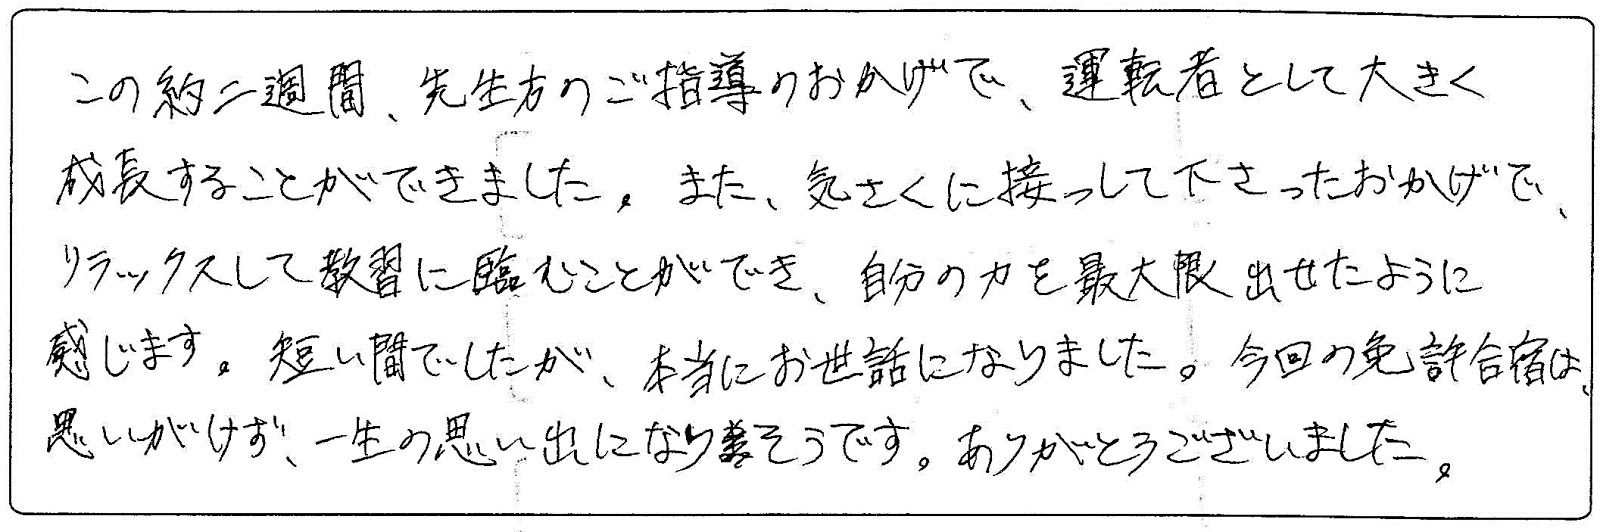 この約二週間、先生方のご指導のおかげで、運転者として大きく
成長することができました。また、気さくに接っして下さったおかげで、
リラックスして教習に臨むことができ、自分の力を最大限出せたように
感じます。短い間でしたが、本当にお世話になりました。今回の免許合宿は、
思いがけず、一生の思い出になりそうです。ありがとうございました。